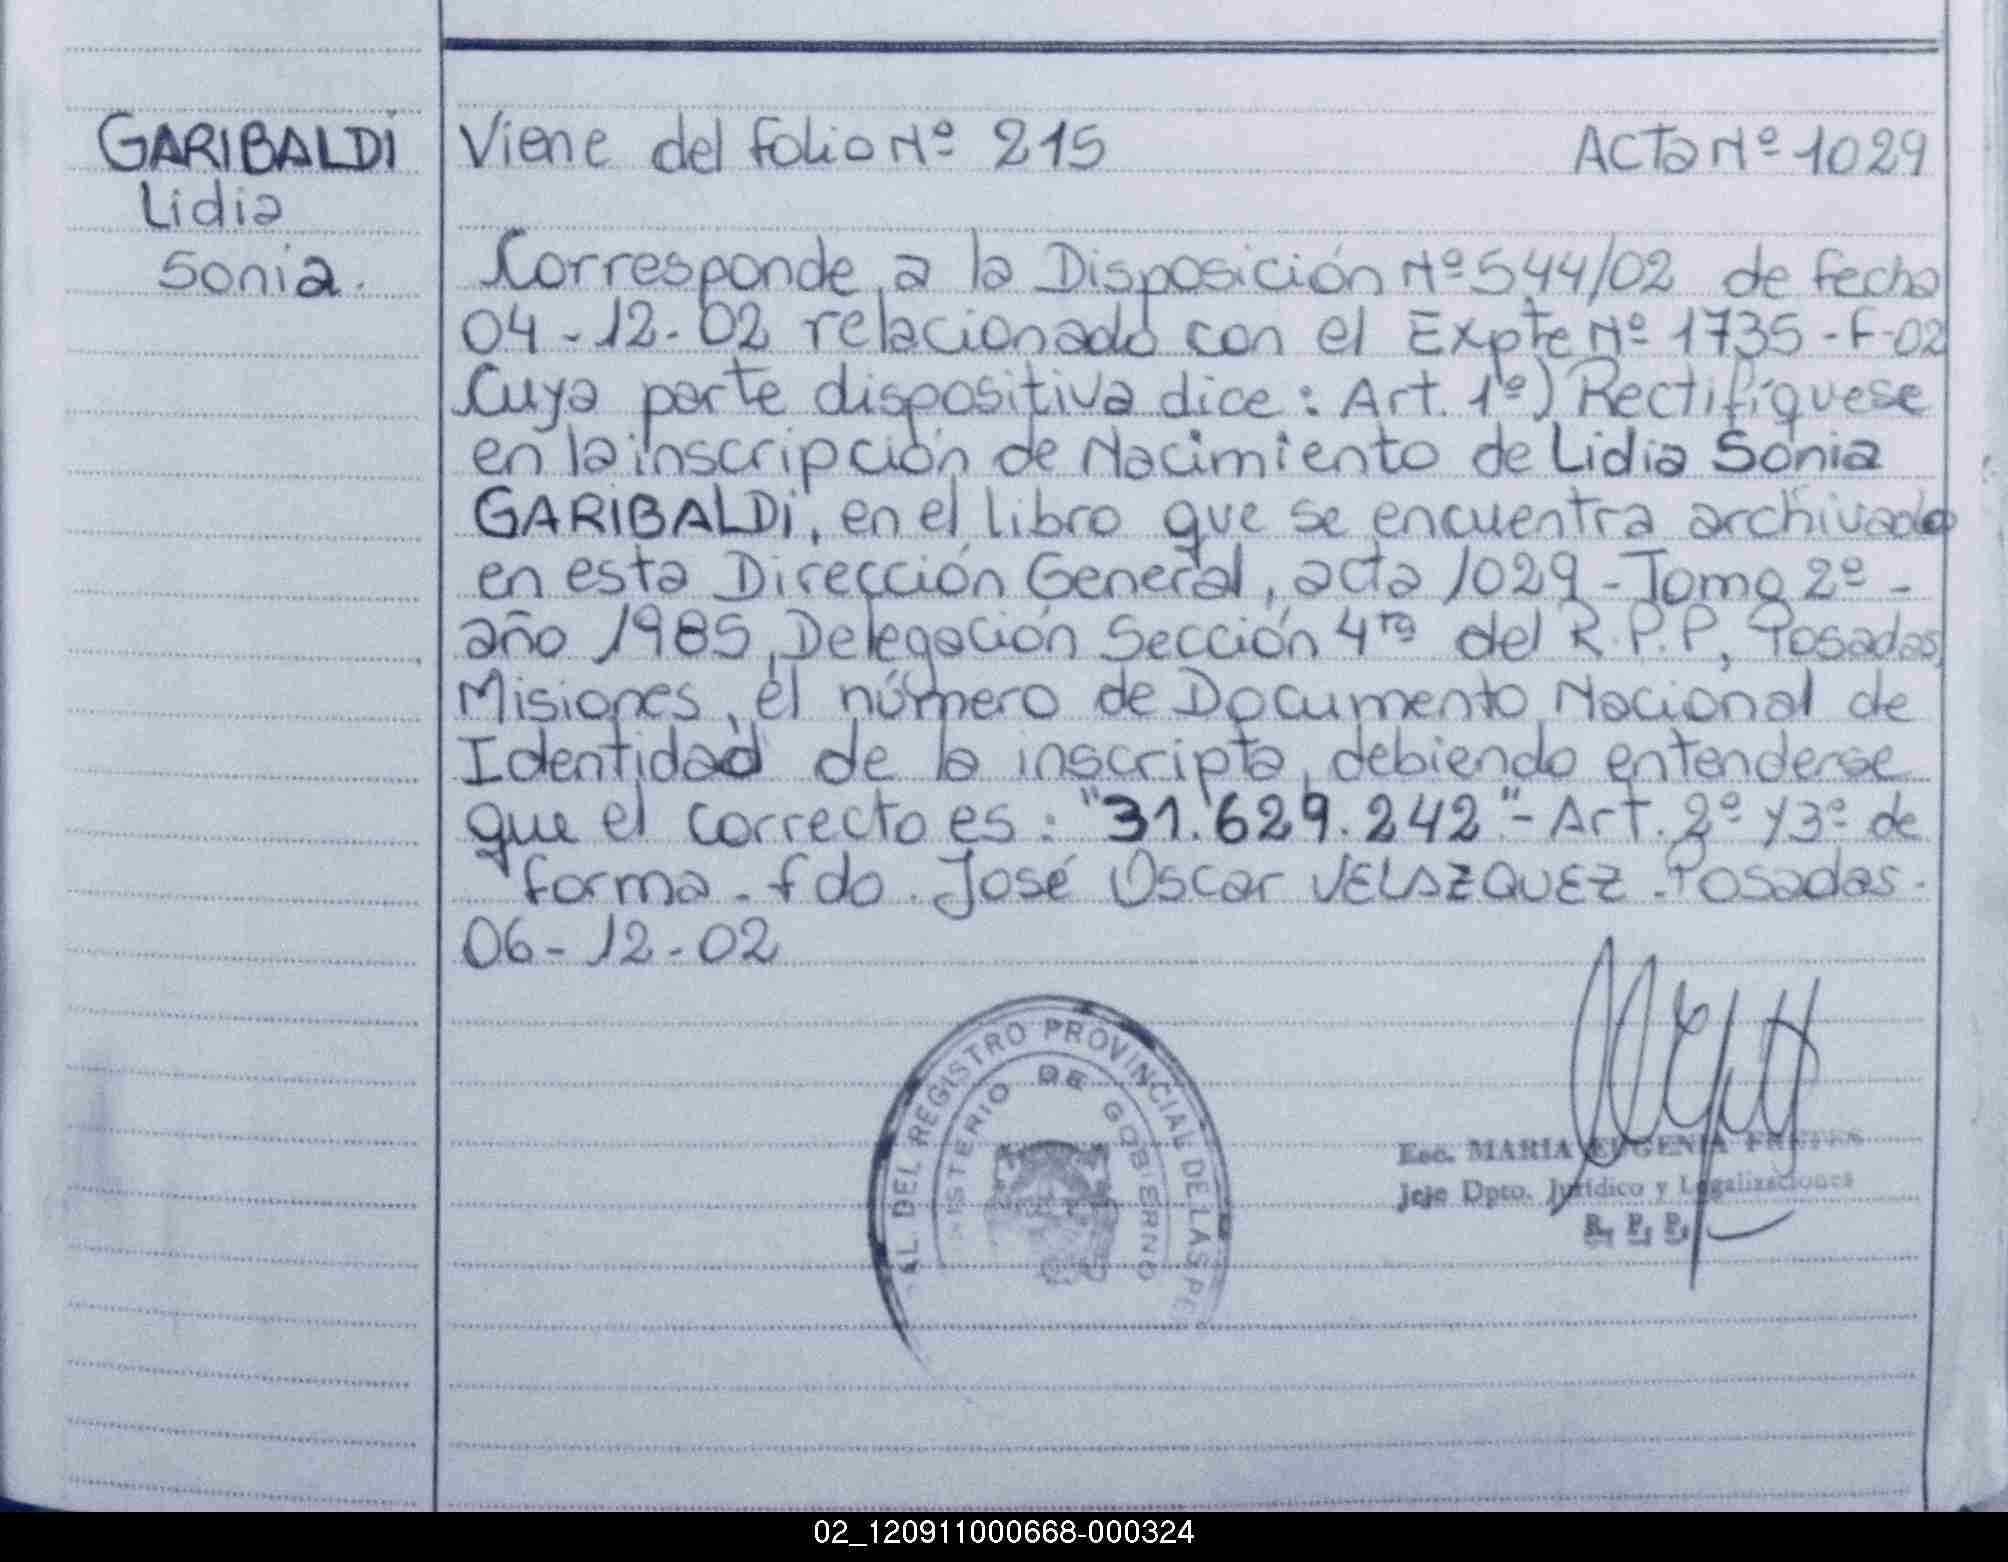 GARIBALDI
Lidia
Sonia.
Viene del folio Nº 215 ACTA Nº 1029
Corresponde a la Disposición Nº 544/02 de fecha
04-12-02 relacionado con el Expte Nº 1735-F-02
Cuya parte dispositiva dice: Art. 1º) Rectifíquese
en la inscripción de Nacimiento de Lidia Sonia
GARIBALDI, en el libro que se encuentra archivado
en esta Dirección General, acta 1029 - Tomo 2º -
año 1985, Delegación Sección 4ta del R.P.P, Posadas,
Misiones, el número de Documento Nacional de
Identidad de la inscripta, debiendo entenderse
que el correcto es: "31.629.242"- Art. 2º y 3º de
forma. fdo. José Oscar VELAZQUEZ. Posadas.
06-12-02
AL DEL REGISTRO PROVINCIAL DE LAS PE
ISTERIO DE GOBIERNO
Esc. MARIA EUGENIA FRETES
Jefe Dpto. Jurídico y Legalizaciones
R. P. P.
02_120911000668-000324